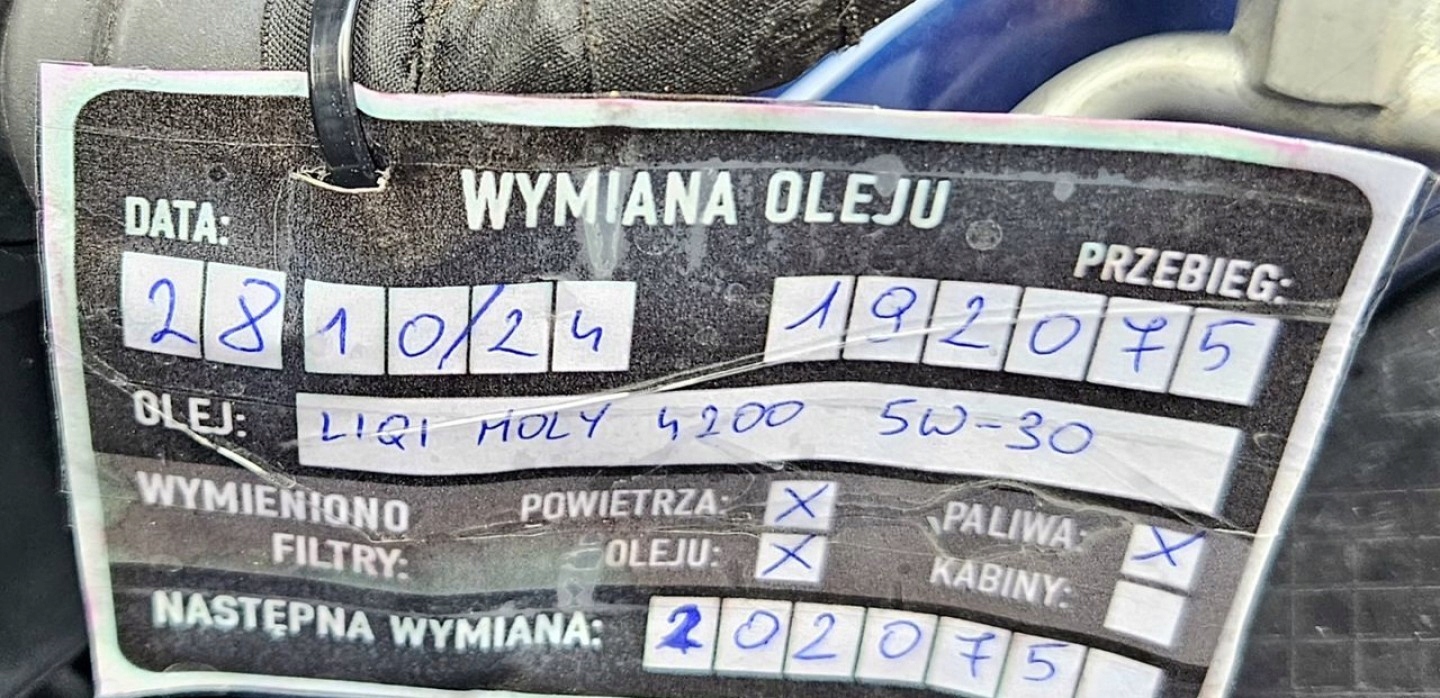 WYMIANA OLEJU
DATA: PRZEBIEG:
28 10/24 192075
OLEJ: LIQI MOLY 4200 5W-30
WYMIENIONO POWIETRZA: X PALIWA: X
FILTRY: OLEJU: X KABINY:
NASTĘPNA WYMIANA: 202075